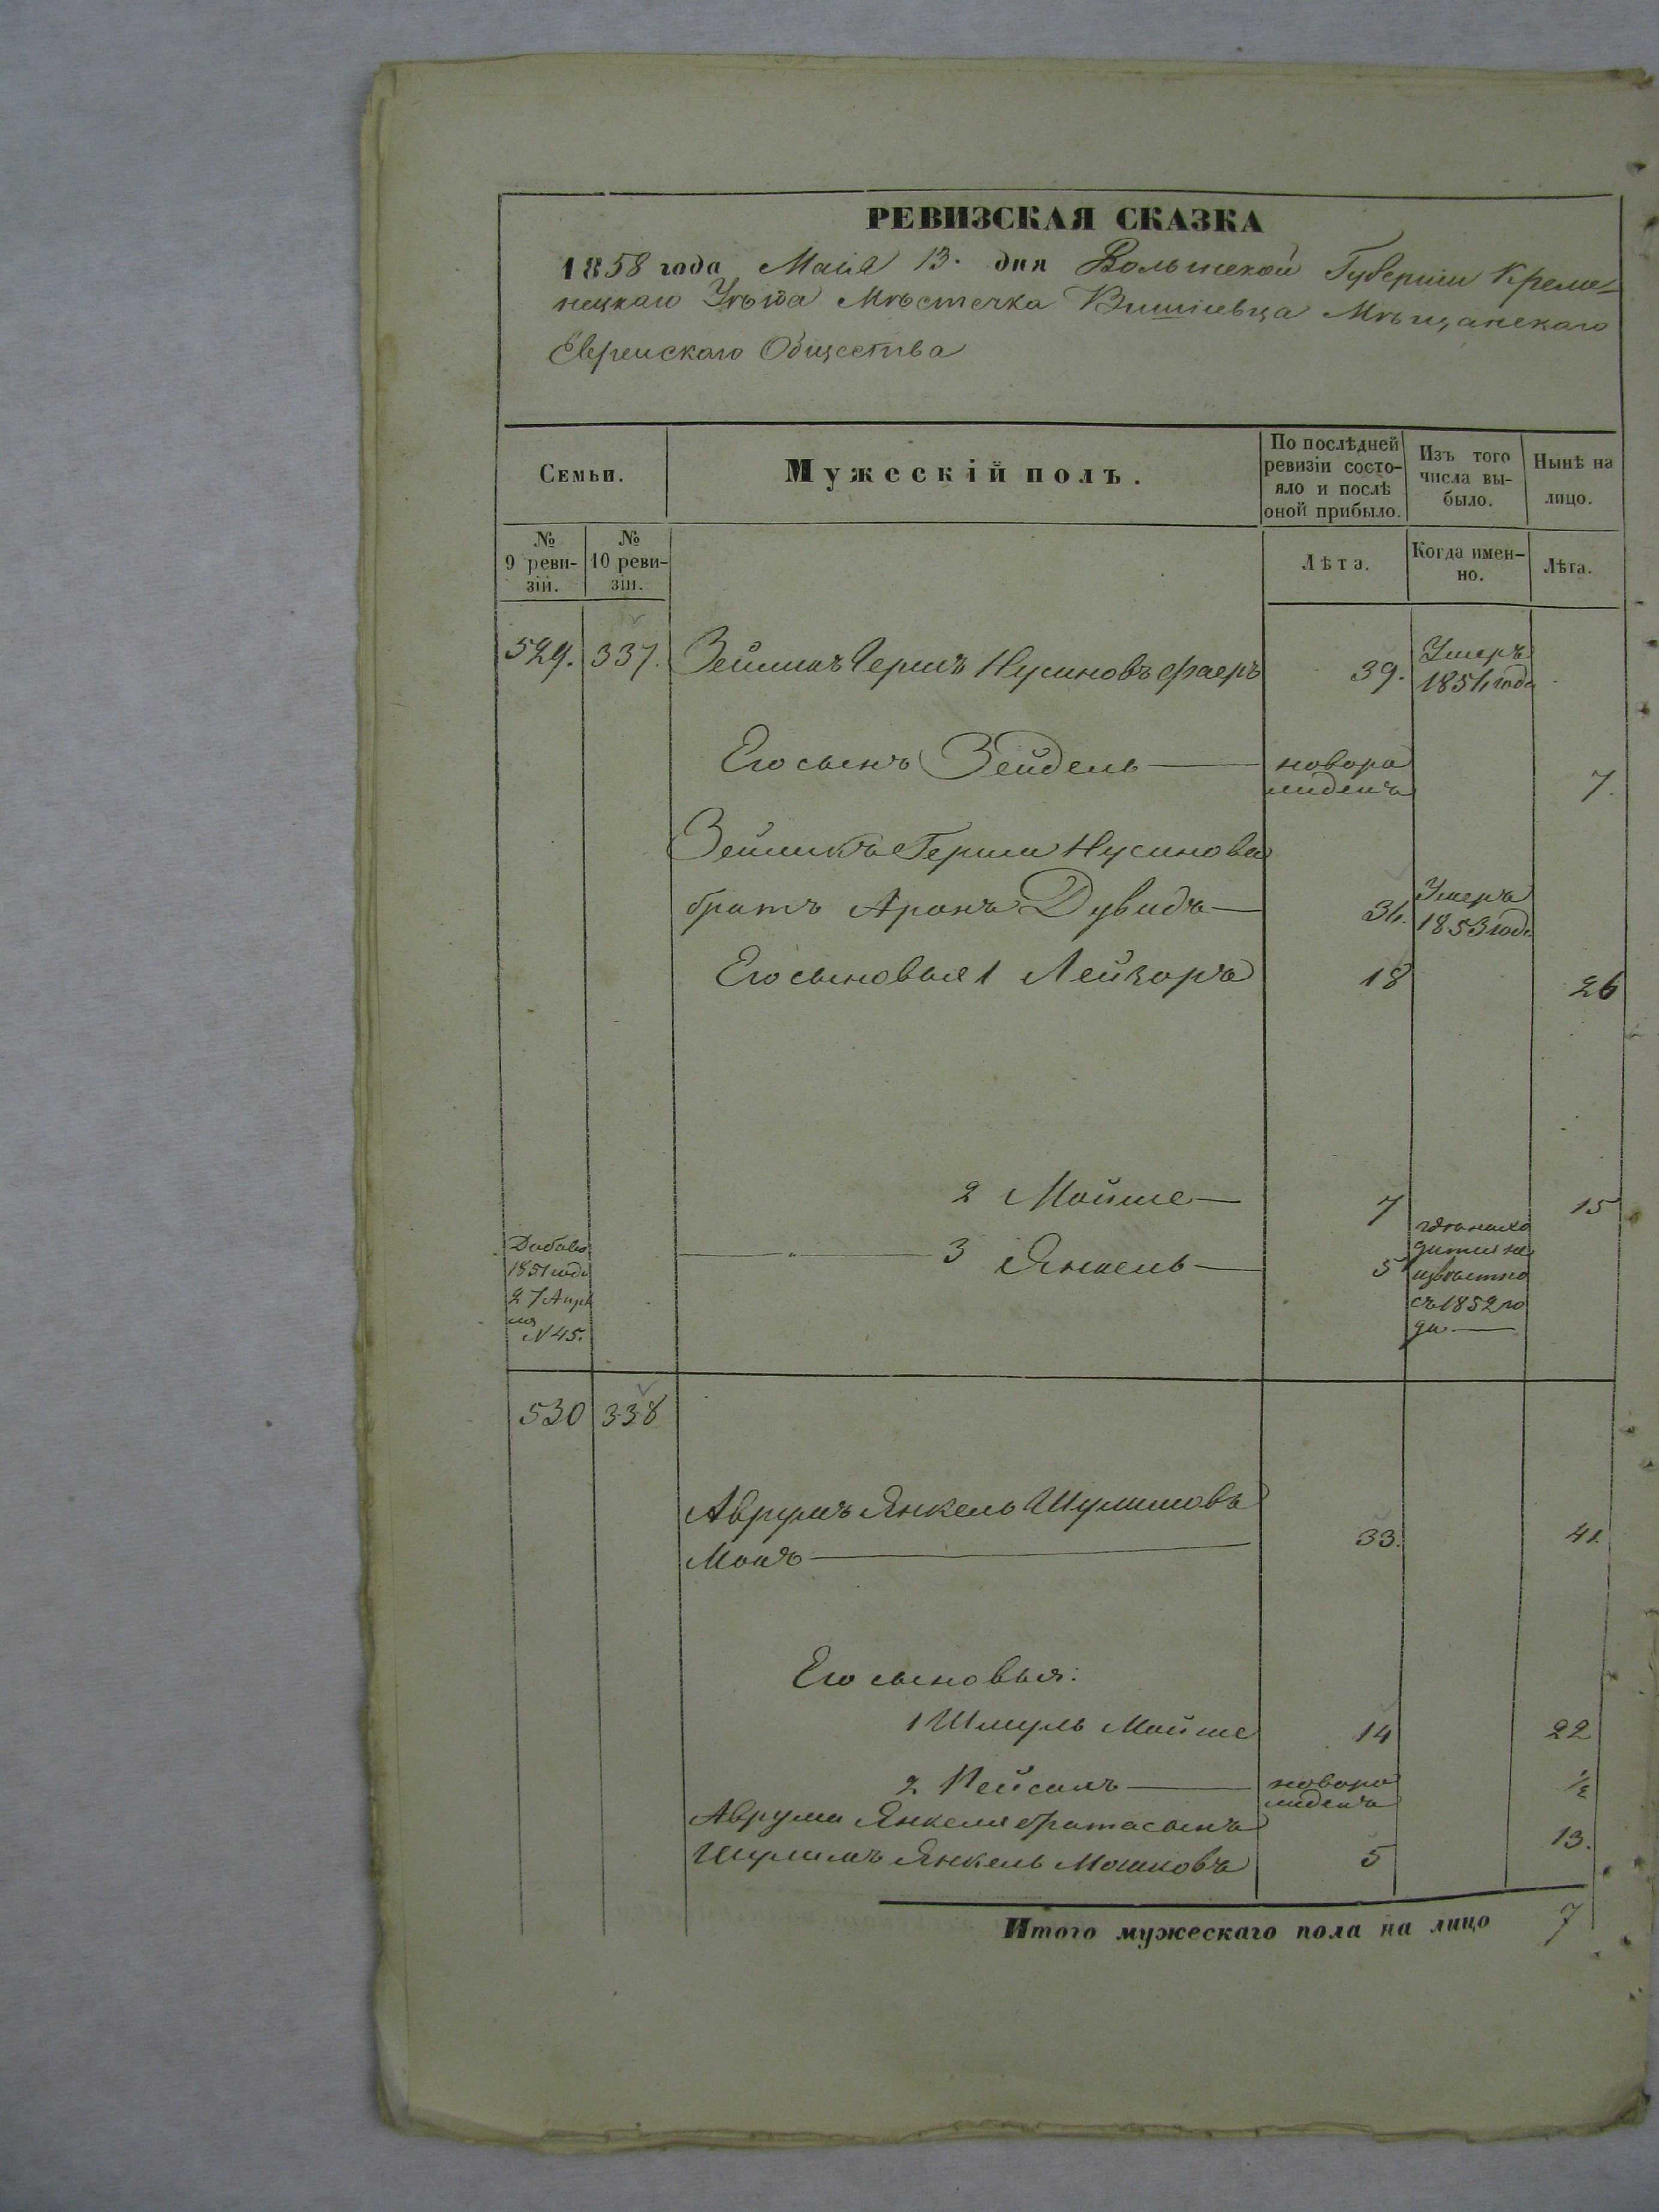 РЕВИЗСКАЯ СКАЗКА
1858 года Маія 13. дня Волынской Губерніи Креме-
нецкаго Уѣзда Мѣстечка Вишневца Мѣщанскаго
Еврейскаго Общества
Семьи.
Мужескій полъ.
По послѣдней
ревизіи состо-
яло и послѣ
оной прибыло.
Изъ того
числа вы-
было.
Нынѣ на
лицо.
№
9 реви-
зій.
№
10 реви-
зіи.
Лѣта.
Когда имен-
но.
Лѣта.
529. 337. Зейликъ Гершъ Нусиновъ Фаеръ 39. Умеръ
1854 года
Его сынъ Зейдель новоро
жденъ 7.
Зейлика Герша Нусинова
братъ Аронъ Дувидъ 34. Умеръ
1853 года
Его сыновья 1 Лейзоръ 18 26
2 Мойше 7 15
3 Янкель 5 гдѣ нахо
дится не
извѣстно
съ 1852 го
да
Добавл
1851 года
27 Апрѣ
ля
N 45.
530 338
Аврумъ Янкель Шулимовъ
Мокъ 33. 41.
Его сыновья:
1 Шмуль Мойше 14 22
2 Пейсахъ новоро
жденъ ½
Аврума Янкеля брата сынъ
Шулимъ Янкель Мошковъ 5 13.
Итого мужескаго пола на лицо 7